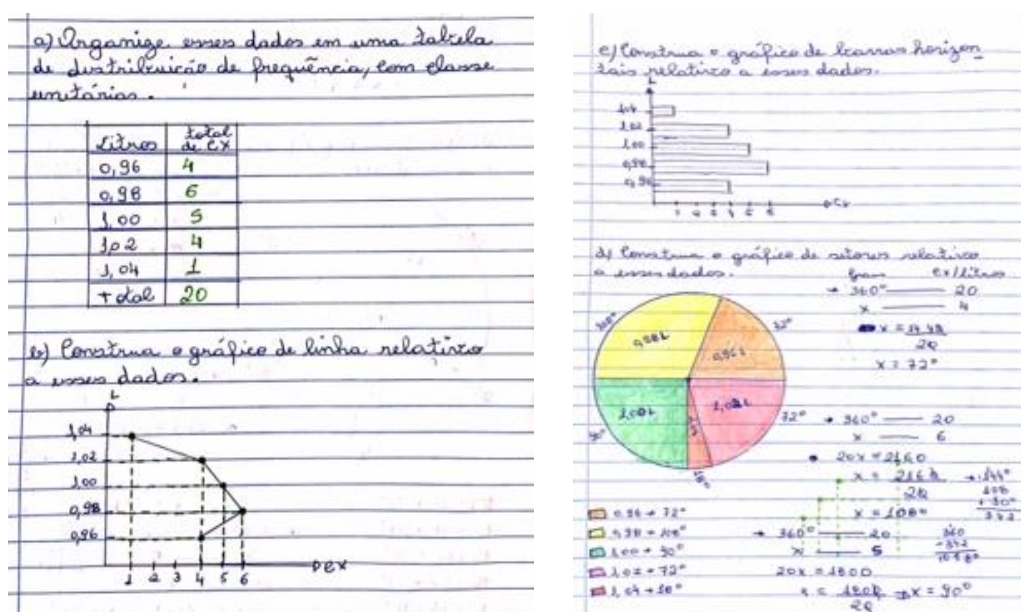 a) Organize esses dados em uma tabela
de distribuição de frequência, com classe
unitárias.
Litros total de CX
0,96 4
0,98 6
1,00 5
1,02 4
1,04 1
total 20
b) Construa o gráfico de linha relativo
a esses dados.
L
1,04
1,02
1,00
0,98
0,96
1 2 3 4 5 6 CX
c) Construa o gráfico de barras horizon
tais relativo a esses dados.
L
1,04
1,02
1,00
0,98
0,96
1 2 3 4 5 6 CX
d) Construa o gráfico de setores relativo
a esses dados.
cx/litros
→ 360° 20
x 4
x = 72°
108° 0,98L
0,96L 72°
1,00L 90°
1,02L 72°
18°
→ 360° 20
x 6
20x = 2160
x = 108°
→ 360° 20
x 5
20x = 1800
x = 90°
0,96 → 72°
0,98 → 108°
1,00 → 90°
1,02 → 72°
1,04 → 18°